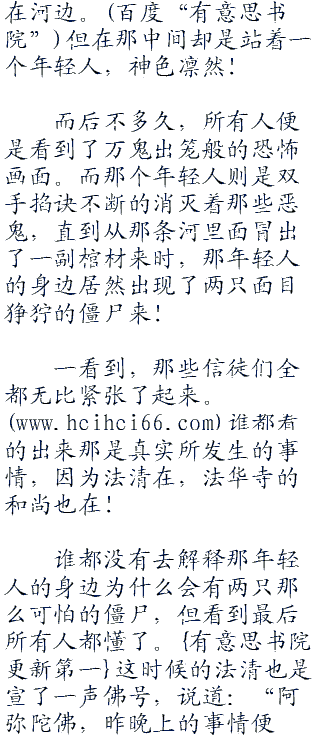 在河边。(百度“有意思书
院”)但在那中间却是站着一
个年轻人，神色凛然！
而后不多久，所有人便
是看到了万鬼出笼般的恐怖
画面。而那个年轻人则是双
手掐诀不断的消灭着那些恶
鬼，直到从那条河里面冒出
了一副棺材来时，那年轻人
的身边居然出现了两只面目
狰狞的僵尸来！
一看到，那些信徒们全
都无比紧张了起来。
(www.hcihci66.com)谁都看
的出来那是真实所发生的事
情，因为法清在，法华寺的
和尚也在！
谁都没有去解释那年轻
人的身边为什么会有两只那
么可怕的僵尸，但看到最后
所有人都懂了。{有意思书院
更新第一}这时候的法清也是
宣了一声佛号，说道：“阿
弥陀佛，昨晚上的事情便